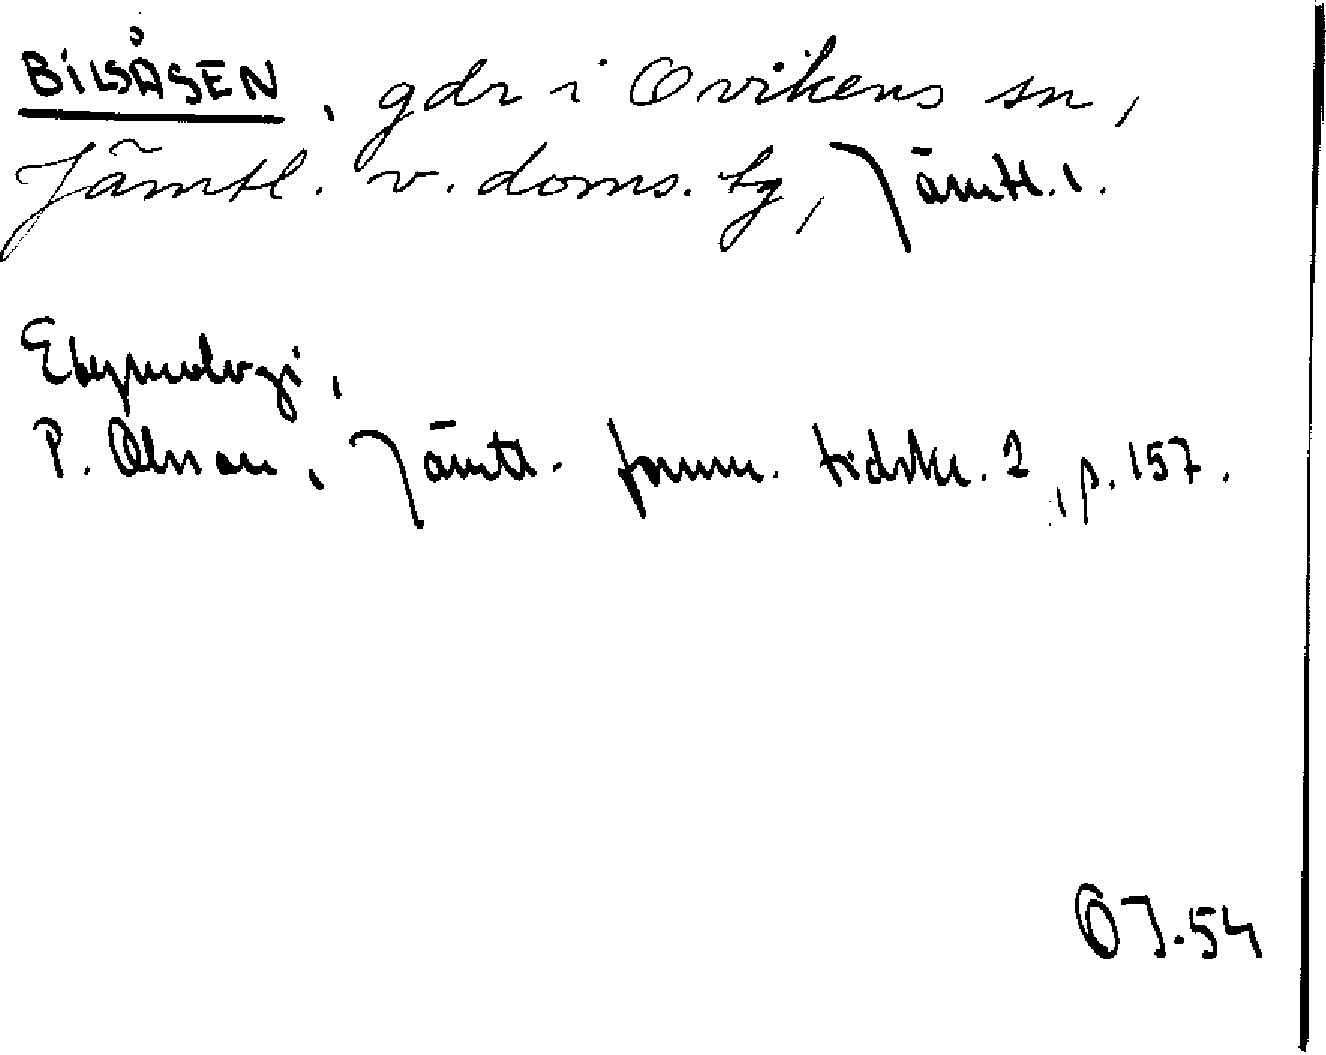 BILSÅSEN, gdr i Ovikens sn,
Jämtl. v. doms. tg, Jämtl. l.
Etymologi,
P. Olsson, Jämtl. fornm. tidskr. 2, p. 157.
OJ.54